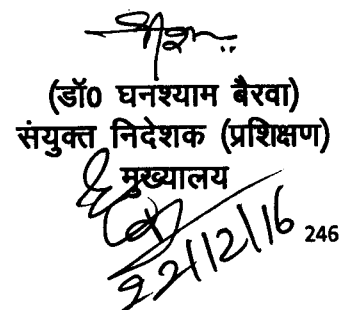 (डॉ0 घनश्याम बैरवा)
संयुक्त निदेशक (प्रशिक्षण)
मुख्यालय
22/12/16 246